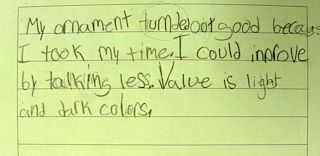 My ornament turnded oot good becaus
I took my time. I could inprove
by talking less. Value is light
and dark colors.